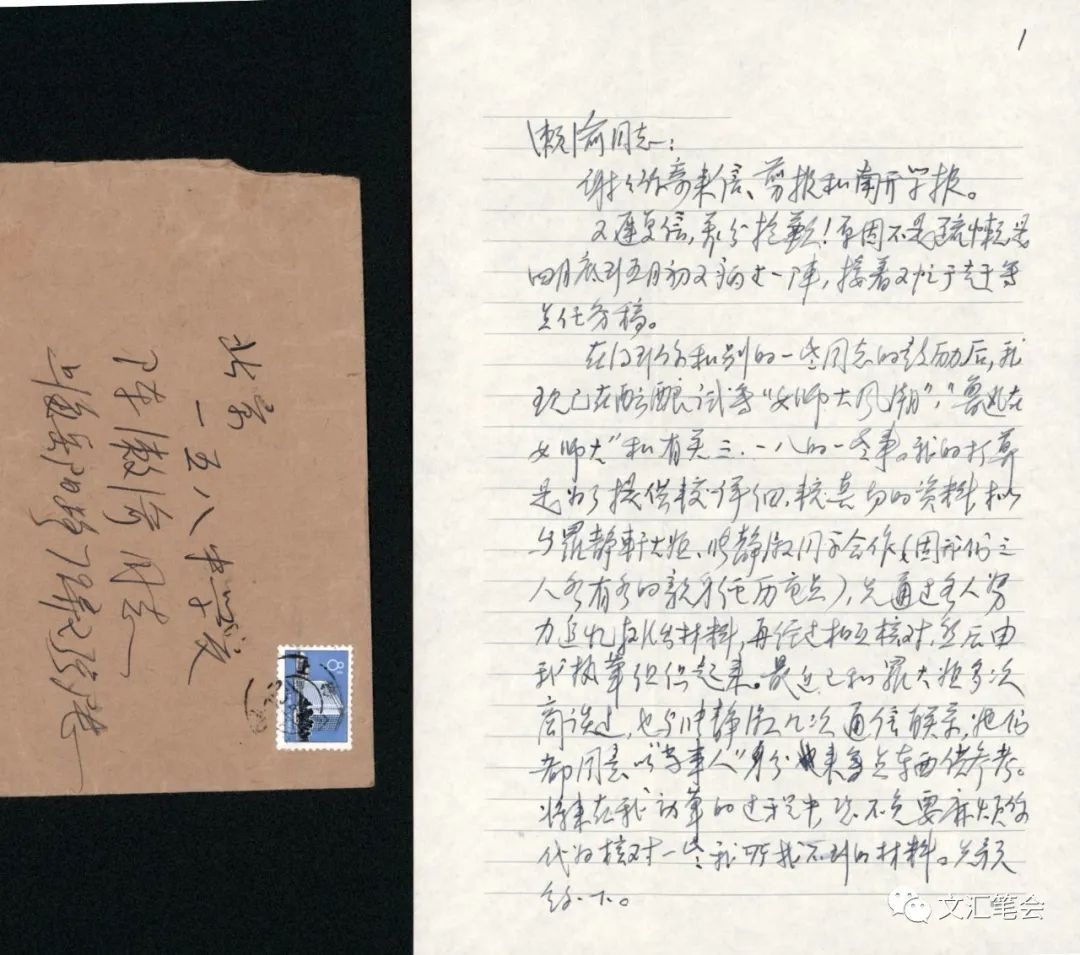 1
漱渝同志：
谢谢你寄来信、剪报和南开学报。
又迟复信，养分抱歉！原因不是疏懒是
四月底到五月初又病了一阵，接着又忙于赶写
点任务稿。
在得到你和别的一些同志的鼓励后，我
现已在酝酿试写“女师大风潮”，“鲁迅在
女师大”和有关三·一八的一些事。我的打算
是为了提供较详细，较真切的资料拟
与罗静轩大姐、陆静淑同志合作（因我们三
人各有各的亲身经历重点），先通过各人努
力追忆材料，再经过相互核对，然后由
我执笔组织起来。最近已和罗大姐多次
商谈过，也与静淑几次通信联系，她们
都同意以“当事人”身份来写点东西供参考。
将来在我动笔的过程中，恐不免要麻烦你
代为核对一些我所找不到的材料。先预
约一下。
北京
一五八中学
陈漱渝同志
8
文汇笔会